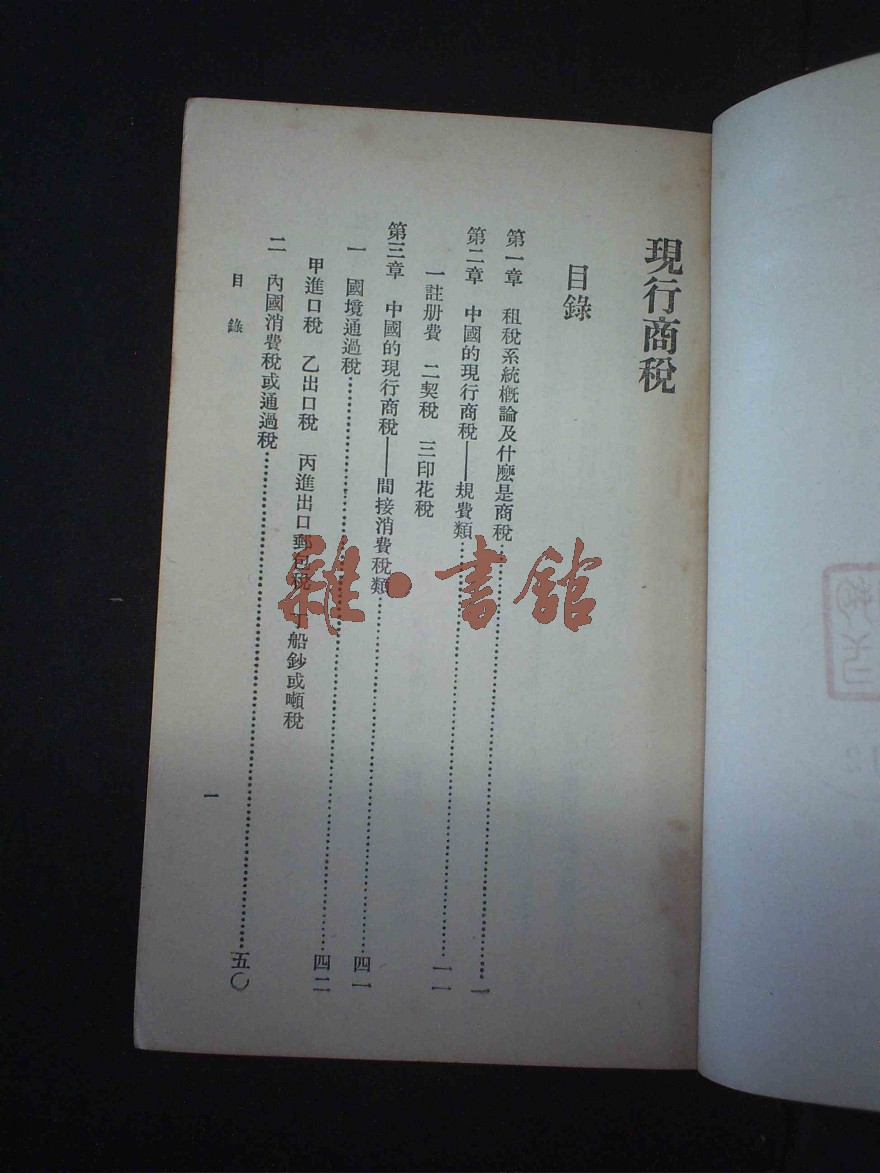 現行商稅
目錄
第一章　租稅系統概論及什麼是商稅……一
第二章　中國的現行商稅——規費類……一一
一註册費　二契稅　三印花稅
第三章　中國的現行商稅——間接消費稅類……四一
一　國境通過稅……四二
甲進口稅　乙出口稅　丙進出口郵包稅　丁船鈔或噸稅
二　內國消費稅或通過稅……五〇
目錄
一
雜·書館